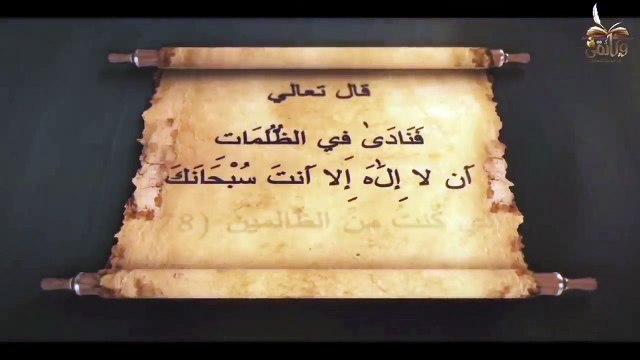 قال تعالي
فَنَادَىٰ في الظُلُمَات
آن لا إِلَٰهَ إِلا آنتَ سُبْحَانَكَ
كُنتُ مِنَ الظالمين (8
وثائقي